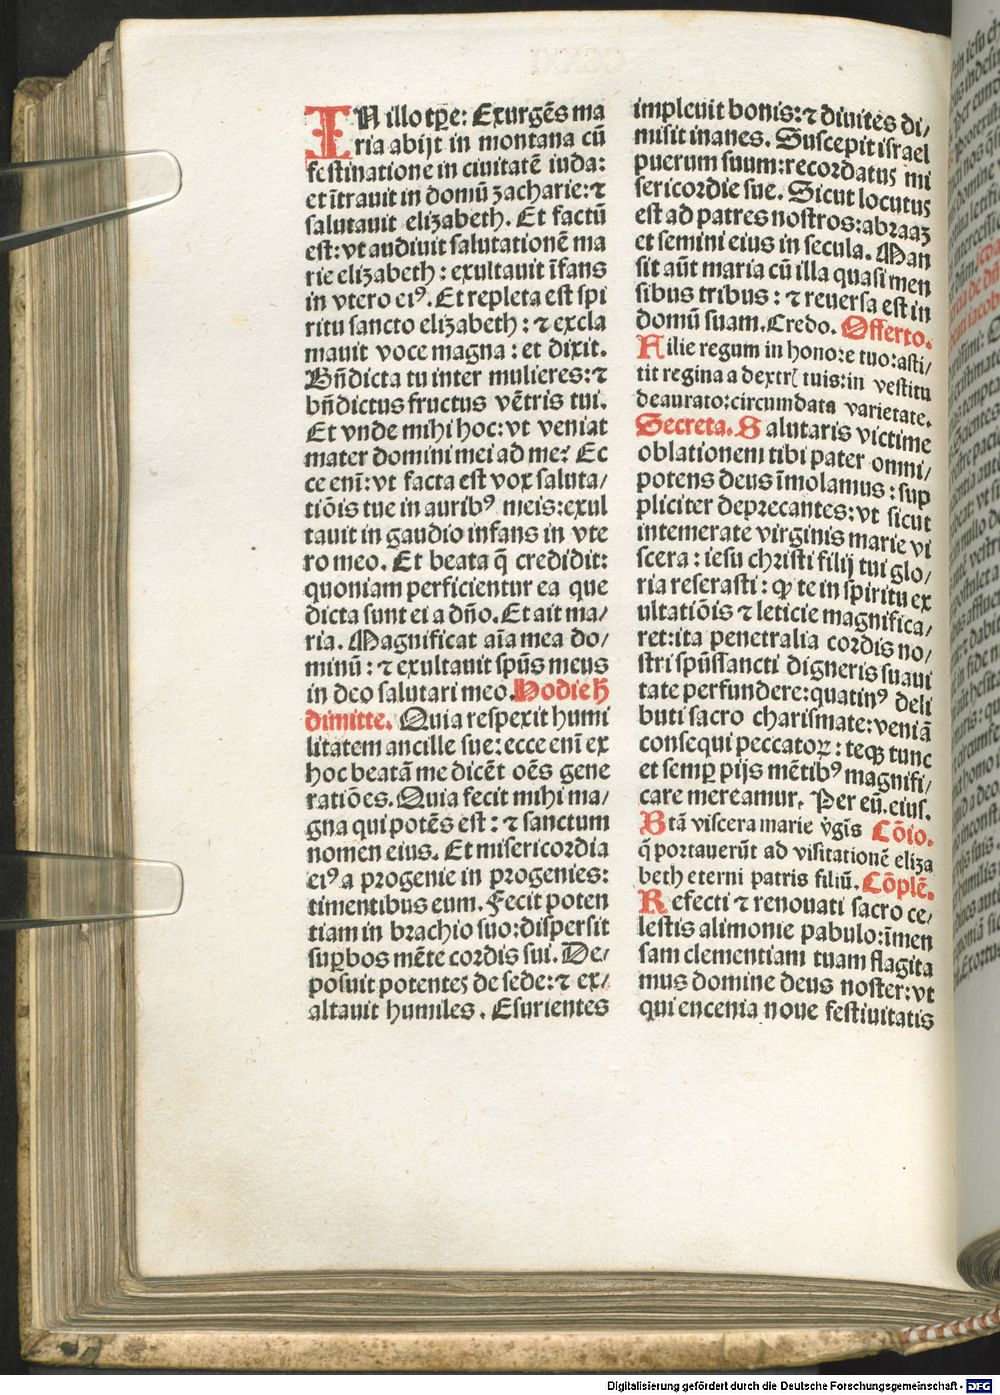 IN illo tp̄e: Exurgēs ma
ria abijt in montana cū
festinatione in ciuitatē iuda:
et ītrauit in domū zacharie: ⁊
salutauit elizabeth. Et factū
est: vt audiuit salutationē ma
rie elizabeth: exultauit īfans
in vtero eiꝰ. Et repleta est spi
ritu sancto elizabeth: ⁊ excla
mauit voce magna: et dixit.
Bn̄dicta tu inter mulieres: ⁊
bn̄dictus fructus vētris tui.
Et vnde mihi hoc: vt veniat
mater domini mei ad me? Ec
ce eni̅: vt facta est vox saluta/
tiōis tue in auribꝰ meis: exul
tauit in gaudio infans in vte
ro meo. Et beata q̄ credidit:
quoniam perficientur ea que
dicta sunt ei a dn̄o. Et ait ma/
ria. Magnificat aīa mea do/
minū: ⁊ exultauit spūs meus
in deo salutari meo. Hodie h̄
dimitte. Quia respexit humi
litatem ancille sue: ecce eni̅ ex
hoc beatā me dicēt oēs gene
ratiōes. Quia fecit mihi ma/
gna qui potēs est: ⁊ sanctum
nomen eius. Et misericordia
eiꝰ a progenie in progenies:
timentibus eum. Fecit poten
tiam in brachio suo: dispersit
suꝑbos mēte cordis sui. De/
posuit potentes de sede: ⁊ ex/
altauit humiles. Esurientes
impleuit bonis: ⁊ diuites di/
misit inanes. Suscepit israel
puerum suum: recordatus mi
sericordie sue. Sicut locutus
est ad patres nostros: abraaz
et semini eius in secula. Man
sit aūt maria cū illa quasi men
sibus tribus: ⁊ reuersa est in
domū suam. Credo. Offerto.
Filie regum in honore tuo: asti/
tit regina a dextrꝭ tuis: in vestitu
deaurato: circumdata varietate.
Secreta. Salutaris victime
oblationem tibi pater omni/
potens deus īmolamus: sup
pliciter deprecantes: vt sicut
intemerate virginis marie vi
scera: iesu christi filij tui glo/
ria reserasti: ꝙ te in spiritu ex
ultatiōis ⁊ leticie magnifica/
ret: ita penetralia cordis no/
stri spūssancti digneris suaui
tate perfundere: quatinꝰ deli
buti sacro charismate: veniā
consequi peccatoꝝ: teqꝫ tunc
et semꝑ pijs mētibꝰ magnifi/
care mereamur. Per eū. eius.
Btā viscera marie v̄gīs Cōio.
q̄ portauerūt ad visitationē eliza
beth eterni patris filiū. Cōplē.
Refecti ⁊ renouati sacro ce/
lestis alimonie pabulo: īmen
sam clementiam tuam flagita
mus domine deus noster: vt
qui encenia noue festiuitatis
Digitalisierung gefördert durch die Deutsche Forschungsgemeinschaft - DFG